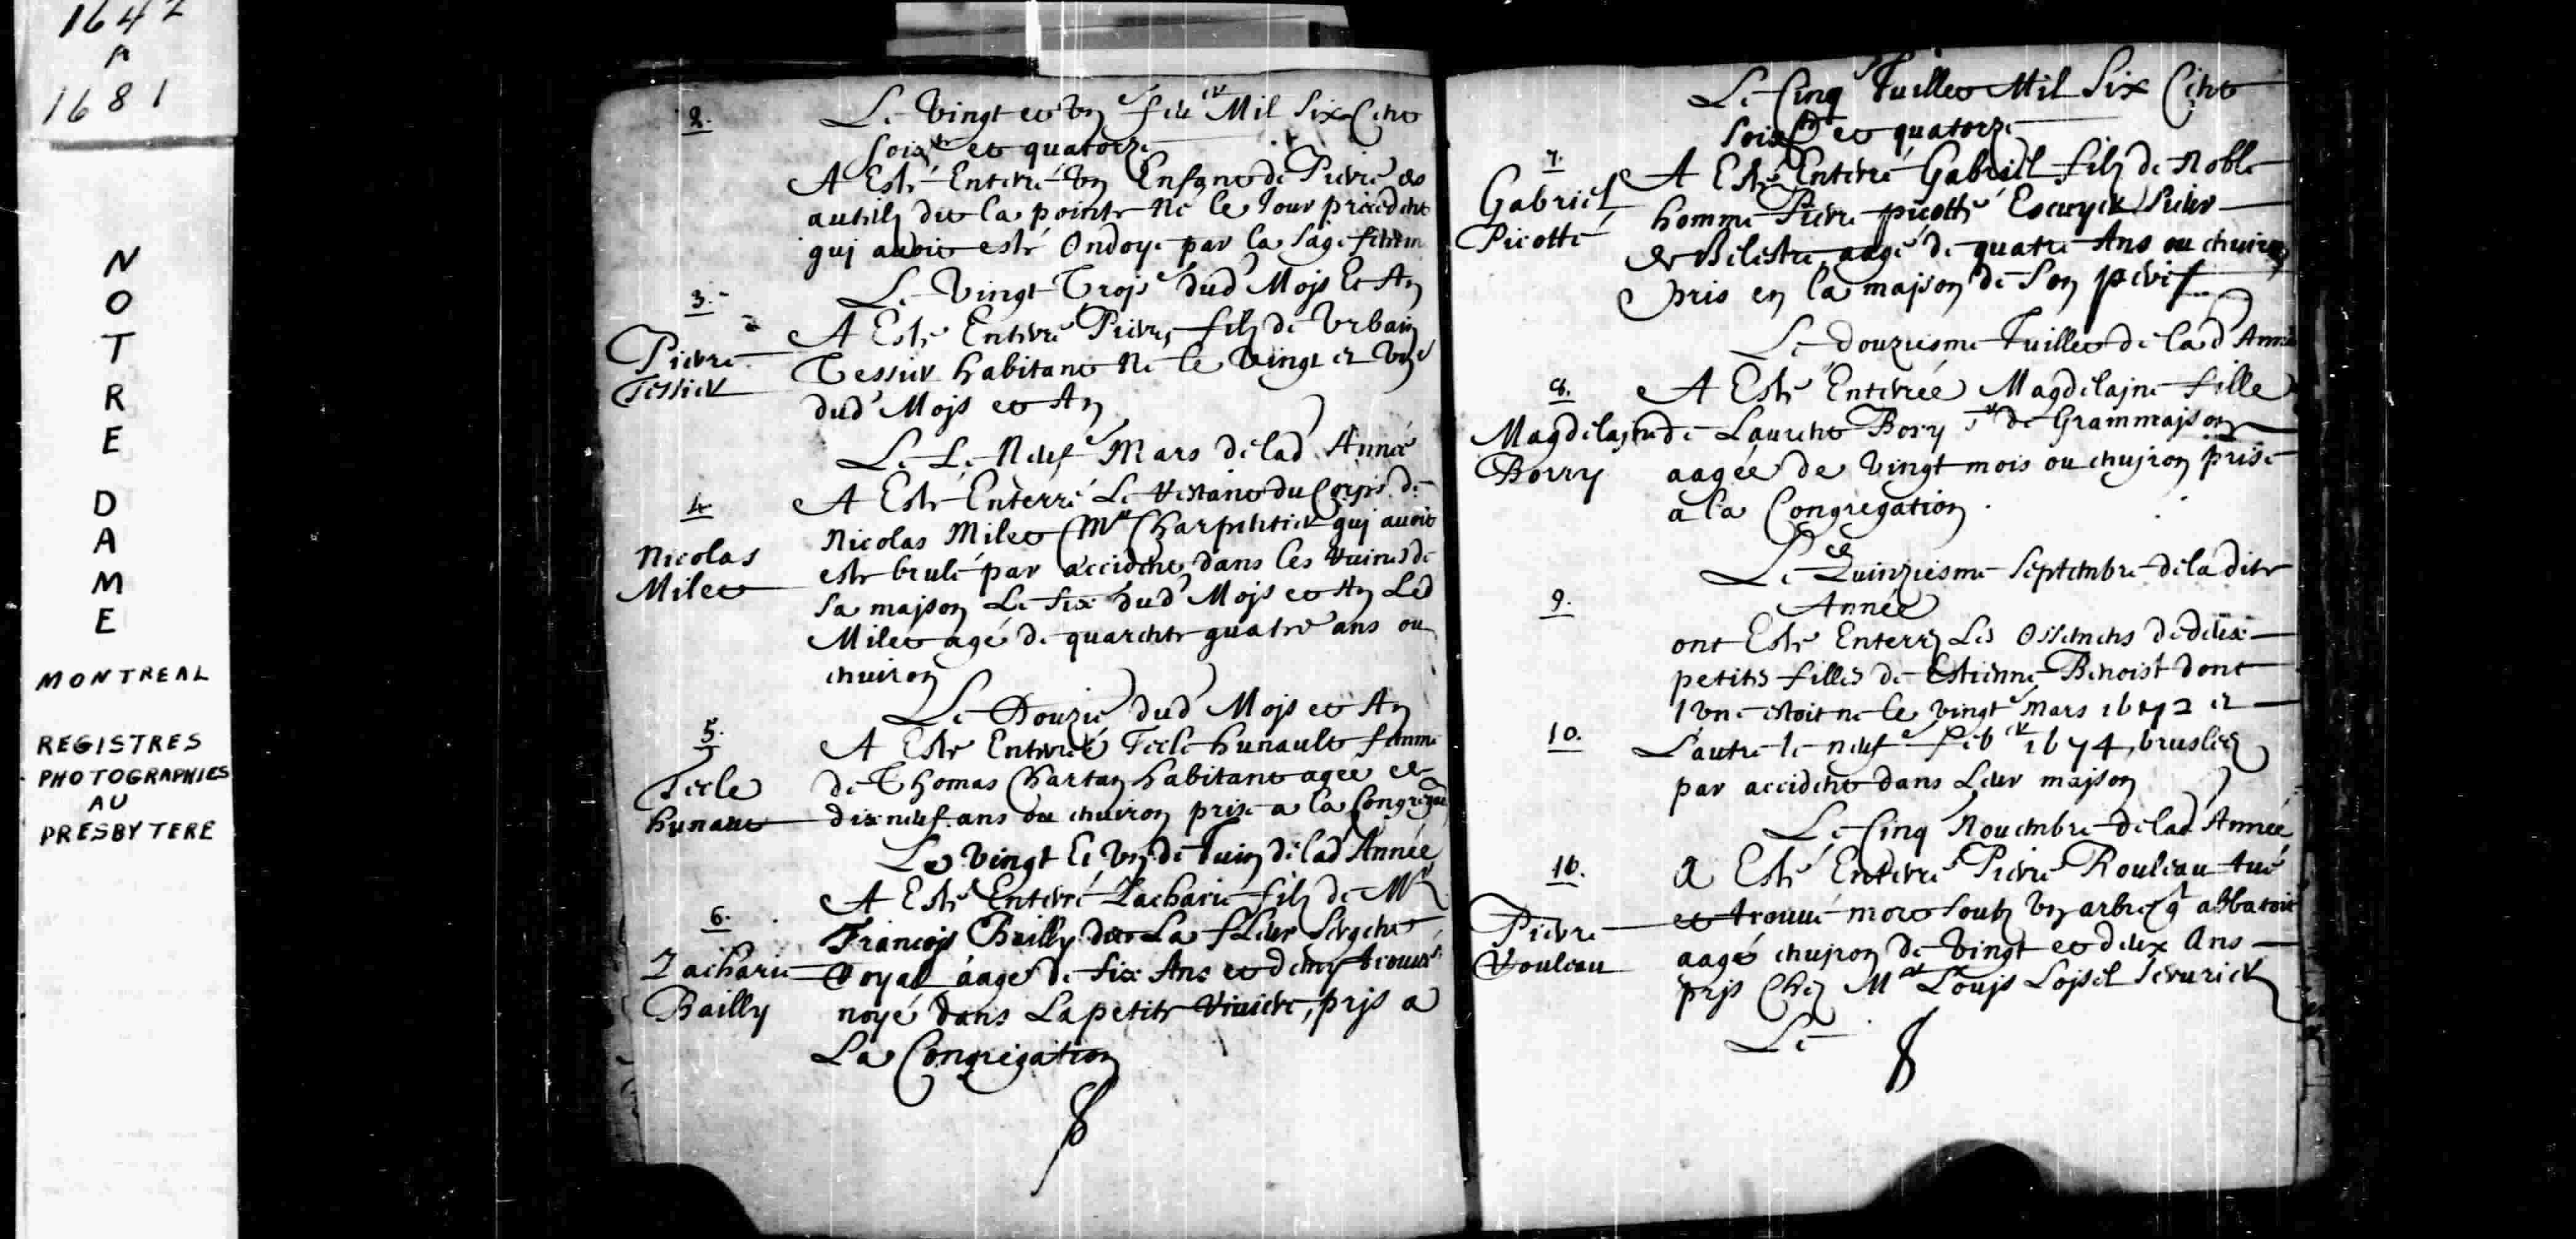 1642
A
1681
NOTRE
DAME
MONTREAL
REGISTRES
PHOTOGRAPHIES
AU
PRESBYTERE
2.
Le Vingt et Vn^e feb^er Mil Six Cents
soix^te et quatorze
A Esté Enterré Vn Enfant de Pierre
autils dit la pointe né le Jour precedent
qui auoit esté Ondoyé par la sage femme
3.
Le Vingt Trois^e dud Mojs Et An
Pierre
Tessier
A Esté Enterré Pierre filz de Vrbain
Tessier habitant né le Vingt et Vn^e
dud Mojs et An
Le Le Neuf^e Mars de lad Année
4.
Nicolas
Milet
A Esté Enterré Le restant du Corps de
Nicolas Milet M^e Charpentier qui auoit
esté brulé par accident dans les ruines de
sa majson Le six dud Mojs et An Led
Milet agé de quarente quatre ans ou
enuiron
Le Douzie^e dud Mojs et An
5.
Tecle
hunault
A Esté Enterreé Tecle hunault femme
de Thomas Chartan habitant ageé de
dix neuf ans ou enuiron prise a la Congregaon
Le vingt Et Vn de Juin de lad Année
6.
Zacharie
Bailly
A Esté Enterré Zacharie filz de M^r
Francojs Bailly dit La fLeur Sergent
Royal áagé de six Ans et demy trouué
noyé dans La petite riuiere, prjs a
La Congregation
Le Cinq^e Juillet Mil Six Cents
soix^te et quatorze
7.
Gabriel
Picotté
A Esté Enterré Gabriel filz de Noble
homme Pierre picotté Escuyer Sieur
de Belestre, aagé de quatre Ans ou enuiron
pris en la majson de Son pere
Le douziesme Juillet de lad Année
8.
Magdelajne
Borry
A Esté Enterrée Magdelajne fille
de Laurent Bory S^r de Grammajson
aagée de Vingt mois ou enujron prise
a la Congregation.
Le Quinziesme Septembre de la dite
Année
9.
ont Esté Enterrez Les Ossemens de deux
petites filles de Estienne Benoist dont
lVne estoit né le vingt^e Mars 1672 et
10.
L'autre le neuf^e feb^er 1674, bruslées
par accident dans Leur majson
Le Cinq^e Nouembre de lad Année
10.
Pierre
Rouleau
A Esté Enterré Pierre Rouleau tué
et trouué mort soubz Vn arbre q^l abbatoit
aagé enujron de Vingt et deux Ans
prjs Chez M^e Loujs Lojsel Serurier
Le